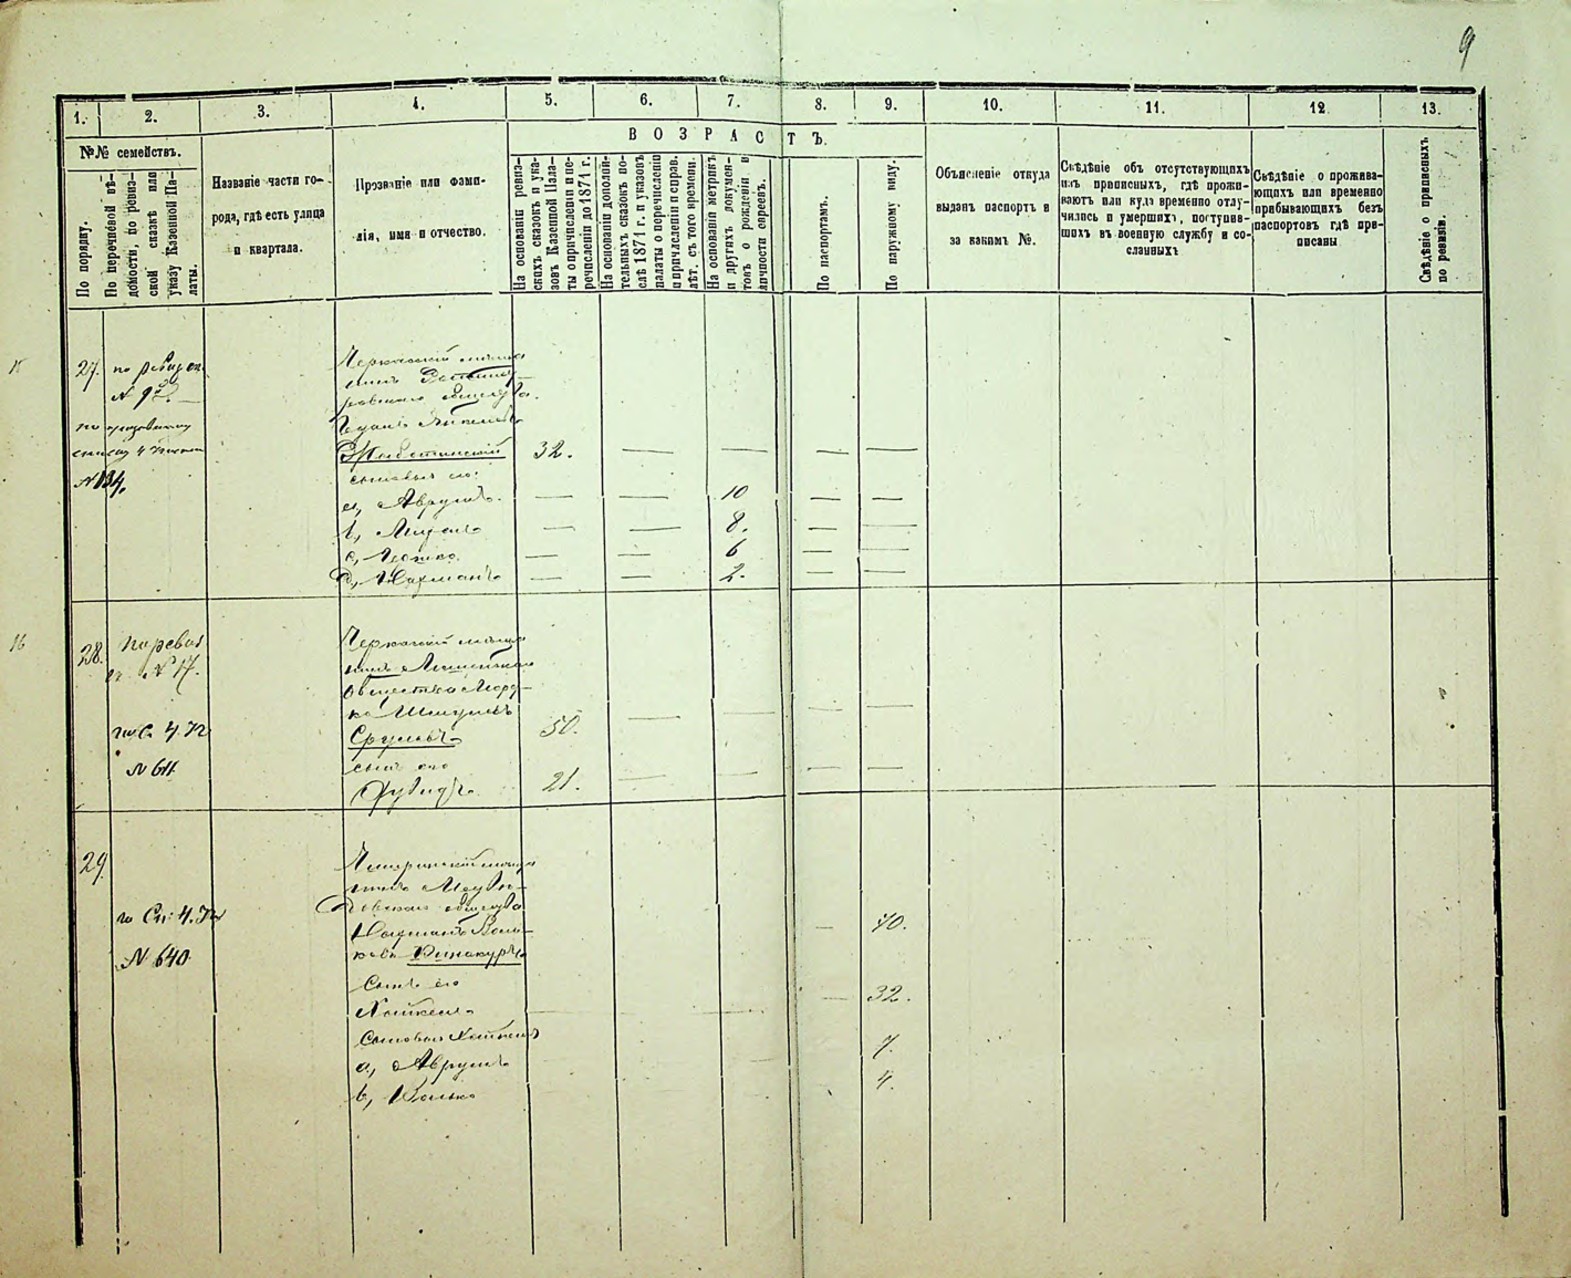 9
1. 2. 3. 4. 5. 6. 7. 8. 9. 10. 11. 12. 13.
ВОЗРАСТЪ.
№№ семействъ.
По порядку.
По перечневой вѣ-
домости, по ревиз-
ской сказкѣ или
указу Казенной Па-
латы.
Названіе части го-
рода, гдѣ есть улица
и квартала.
Прозваніе или фами-
лія, имя и отчество.
На основаніи ревиз-
скихъ сказокъ и ука-
зовъ Казенной Пала-
ты о причисленіи и пе-
речисленіи до 1871 г.
На основаніи дополни-
тельныхъ сказокъ по-
слѣ 1871 г. и указовъ
палаты о перечисленіи
и причисленіи и справ.
лѣт. съ того времени.
На основаніи метрикъ
и другихъ докумен-
товъ о рожденіи и
личности евреевъ.
По паспортамъ.
По наружному виду.
Объясненіе откуда
выданъ паспортъ и
за какимъ №.
Свѣдѣніе объ отсутствующихъ
изъ приписныхъ, гдѣ прожи-
ваютъ или куда временно отлу-
чились и умершихъ, поступив-
шихъ въ военную службу и со-
сланныхъ
Свѣдѣніе о прожива-
ющихъ или временно
прибывающихъ безъ
паспортовъ гдѣ при-
писаны
Свѣдѣніе о приписныхъ
по ревизіи.
15
27. по ревиз ск.
№ 92.
№ 134.
Черкасскій мѣща
нинъ
общества.
32.
сыновья его:
а, Аврумъ. 10
8.
с, Иошко 6
d, Нахманъ 2.
16
28. по ревиз
№ 17.
по Сп. Ч. 72
№ 611
Черкаскій мѣща
нинъ
общества Морд-
ко Шмулевъ
Срулевъ 50.
сынъ его
21.
29.
по Сп: Ч. 72
№ 640
Чигиринскій мѣща
нинъ Медвѣ-
довскаго общества
Нахманъ Воль-
ковъ Винокуръ 70.
Сынъ его
Хайкель 32.
Сыновья Хайкеля
а, Аврумъ 7.
b, Волько 4.